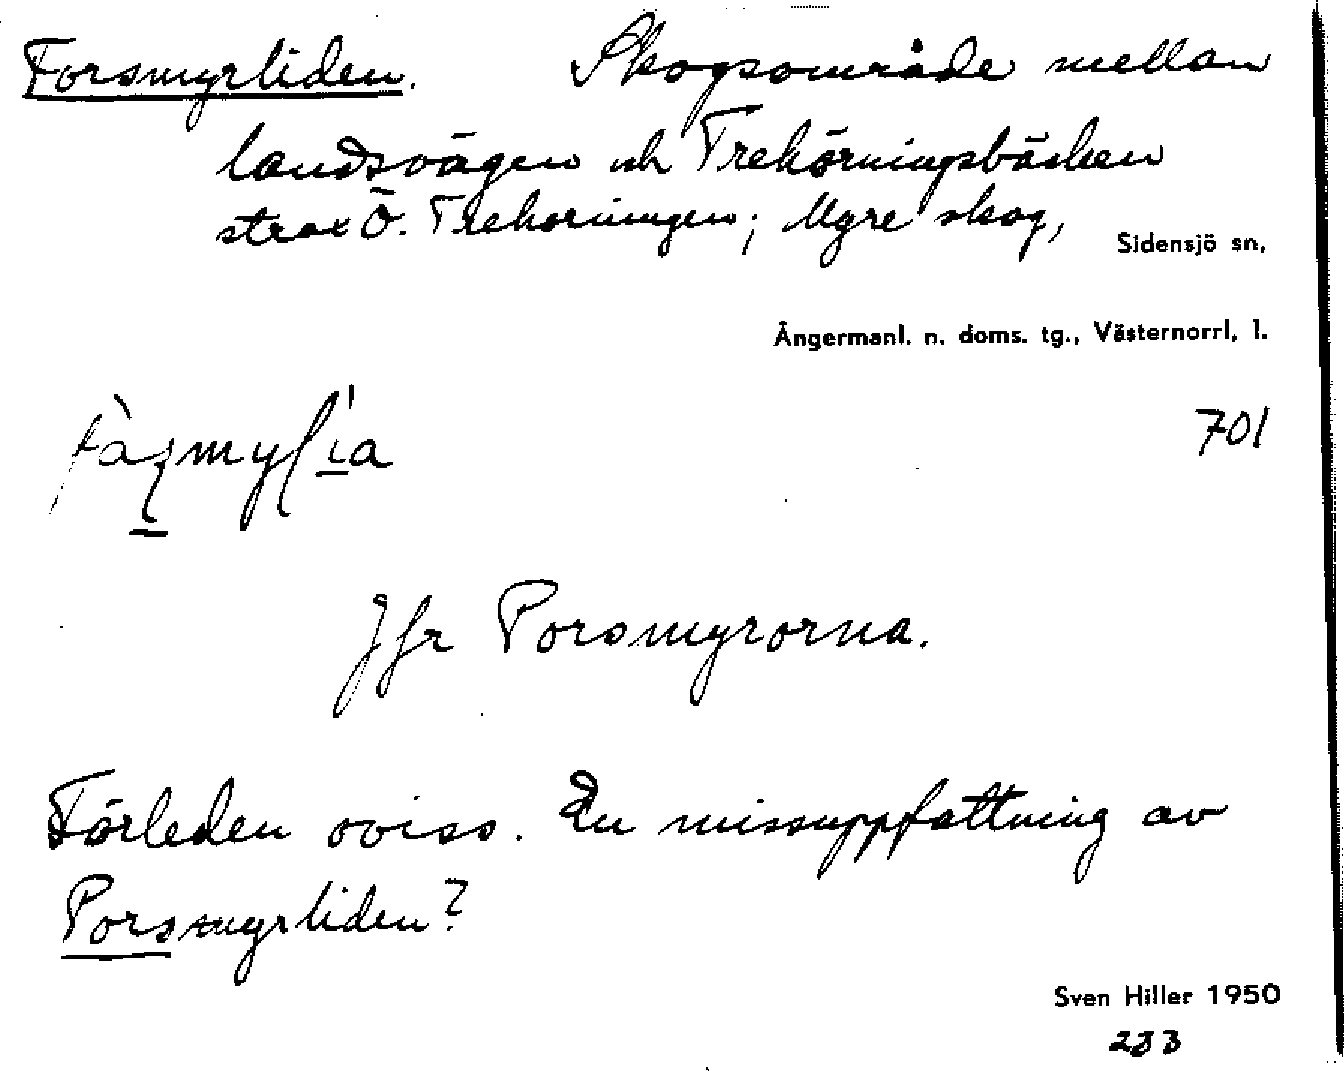 Forsmyrliden. Skogsområde mellan
landsvägen och Trehörningsbäcken
strax Ö. Trehörningen; Myre skog,
Sidensjö sn,
Ångermanl. n. doms. tg., Västernorrl. l.
701
Jfr Porsmyrorna.
Förleden oviss. En missuppfattning av
Porsmyrliden?
Sven Hiller 1950
233